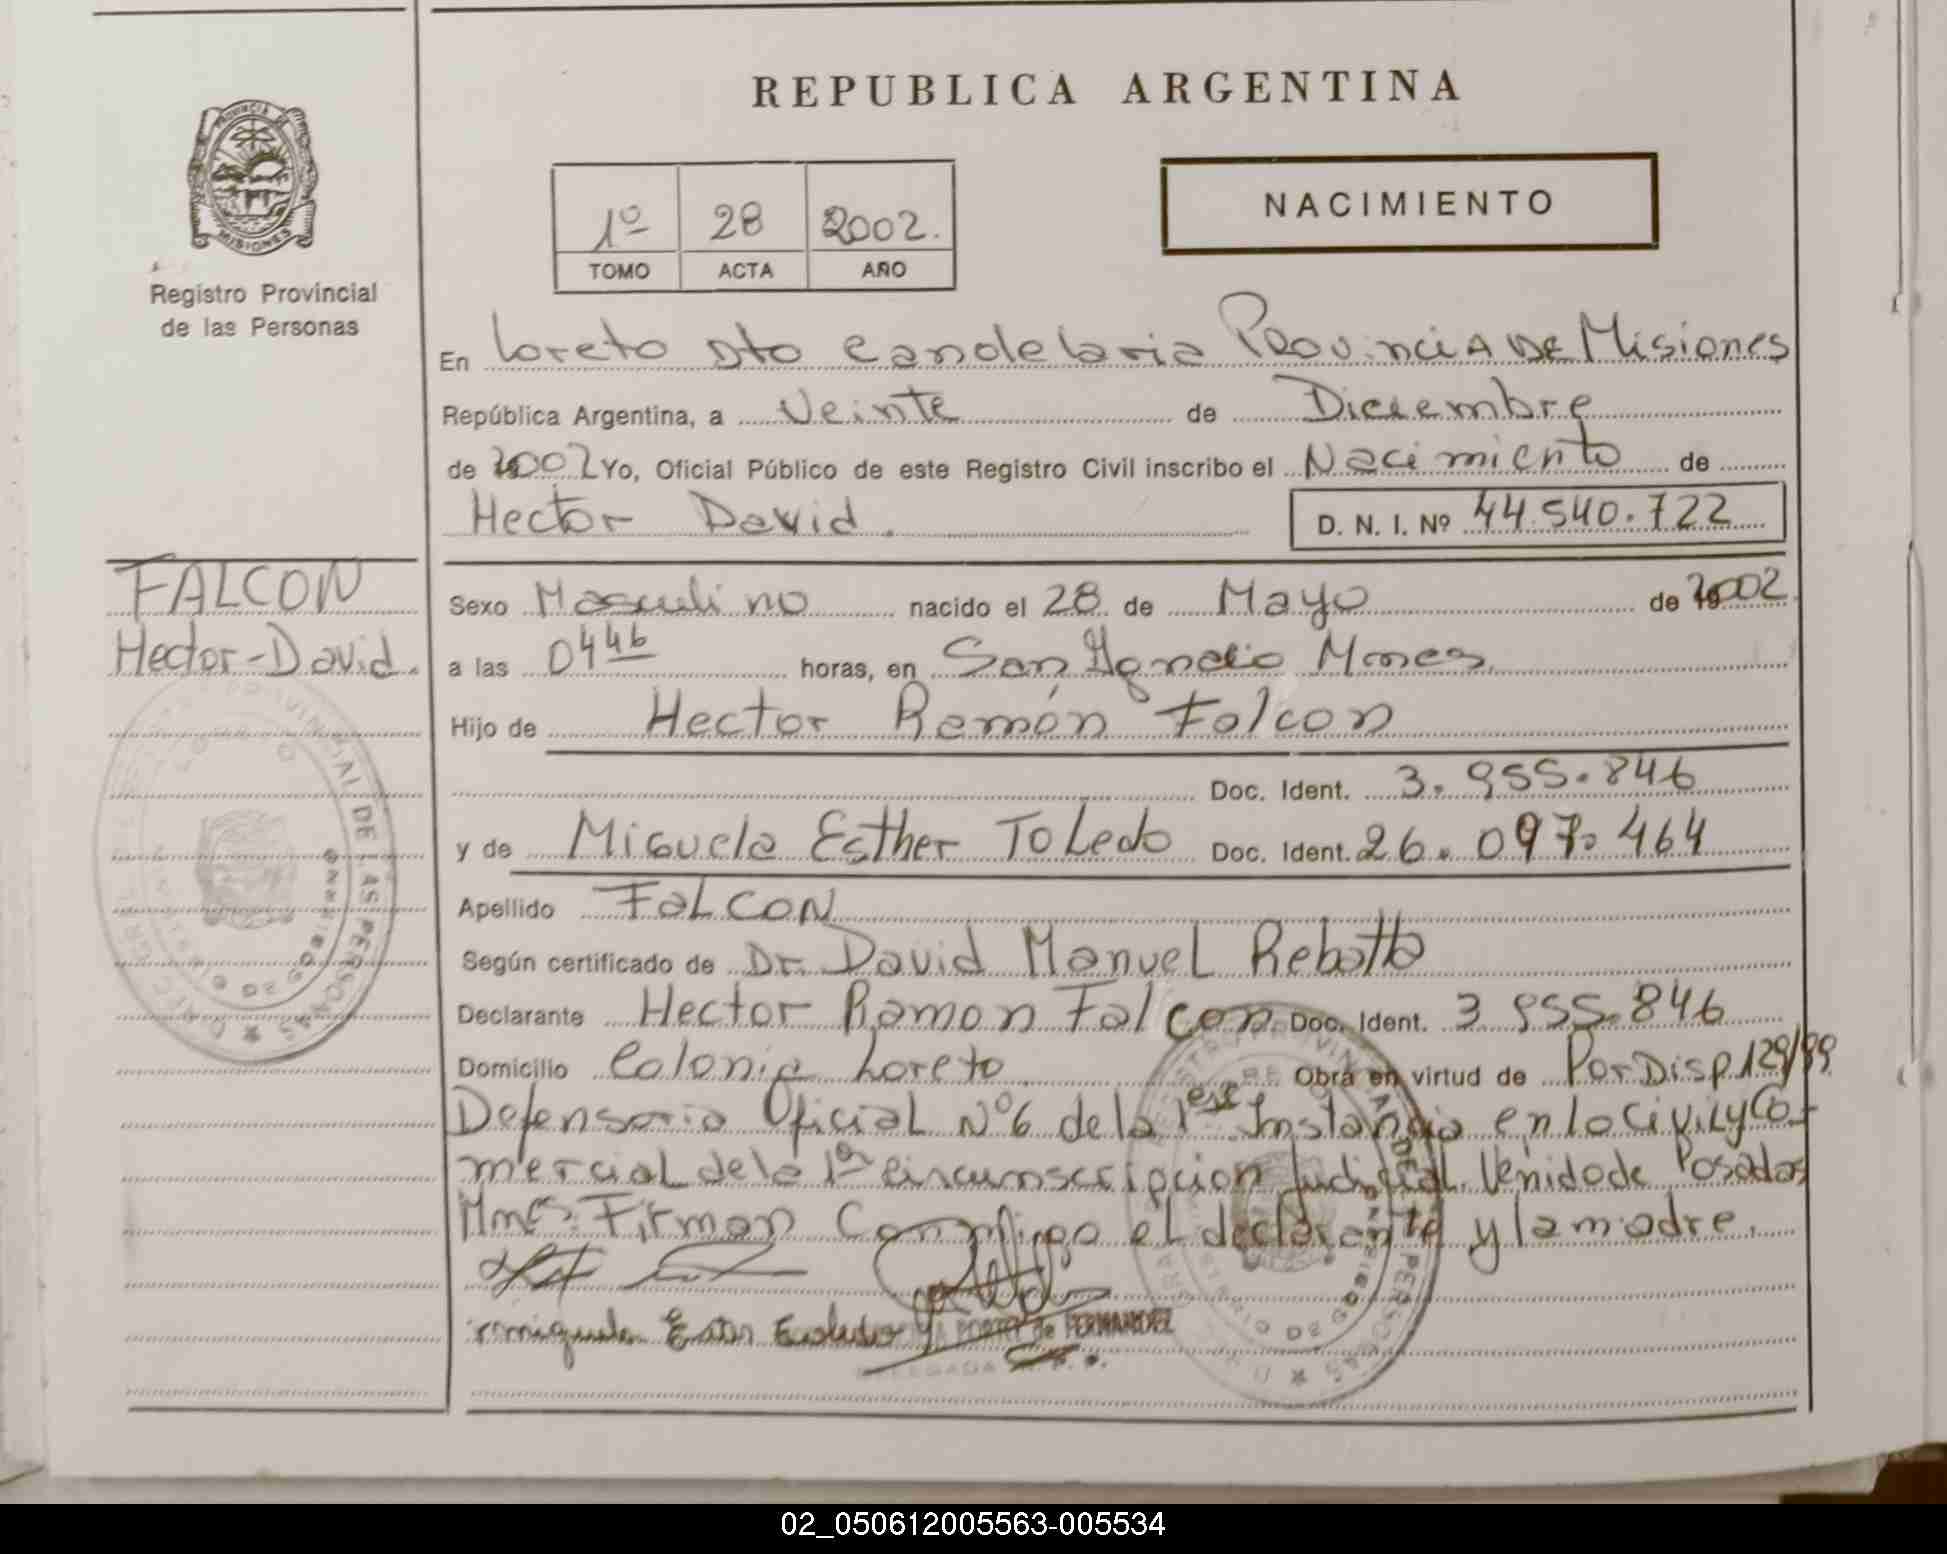 REPUBLICA ARGENTINA
PROVINCIA DE
MISIONES
Registro Provincial
de las Personas
1º 28 2002.
TOMO ACTA AÑO
NACIMIENTO
En Loreto Dto Candelaria Provincia de Misiones
República Argentina, a Veinte de Diciembre
de 2002 Yo, Oficial Público de este Registro Civil inscribo el Nacimiento de
Hector David. D. N. I. Nº 44.540.722
FALCON
Hector-David.
Sexo Masculino nacido el 28 de Mayo de 2002.
a las 0446 horas, en San Ignacio Mnes.
Hijo de Hector Ramón Falcon
Doc. Ident. 3.955.846
y de Miguela Esther Toledo Doc. Ident. 26.097.464
Apellido FalCON
Según certificado de Dr. David Manuel Rebotto
Declarante Hector Ramon Falcon Doc. Ident. 3 955.846
Domicilio Colonia Loreto Obra en virtud de Por Disp 129/99
Defensoria Oficial Nº6 de la 1era Instancia en lo Civil y Co-
mercial de la 1ª circunscripcion Judicial. Venido de Posadas
Mnes. Firman Conmigo el declarante y la madre.
PORTA de FERNANDEZ
DELEGADA
02_050612005563-005534